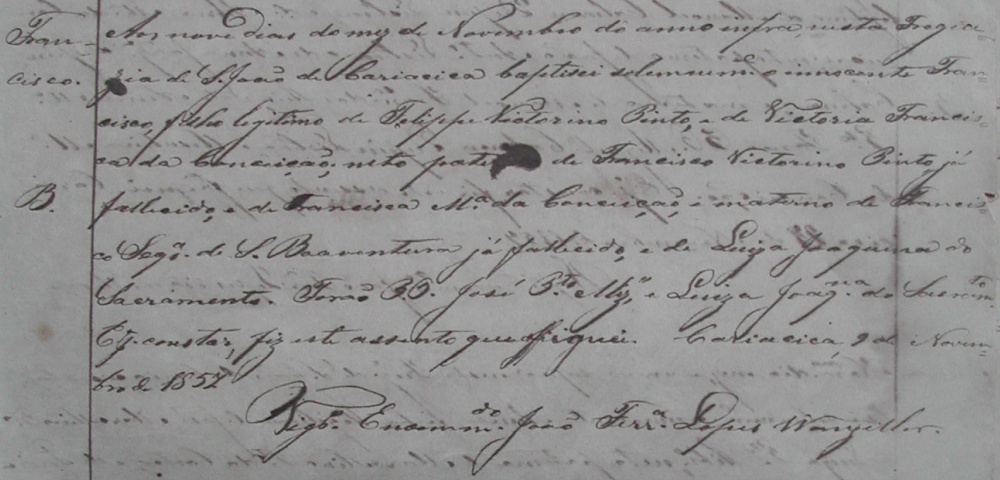 Fran-
cisco.
B.
Aos nove dias do mez de Novembro do anno infra nesta Fregue-
zia de S. João de Cariacica baptisei solemnem.e o innocente Fran-
cisco, filho legitimo de Felippe Victorino Pinto, e de Victoria Francis-
ca da Conceição; neto paterno de Francisco Victorino Pinto, já
fallecido, e de Francisca M.a da Conceição; e materno de Francis-
co de S. Boaventura já fallecido, e de Luiza Joaquina do
Sacramento. Forão P.P. José e Luiza Joaq.na do Sacram.to
E p.a constar, fiz este assento que firmei. Cariacica, 9 de Novem-
bro de 1857
Vig.o Encommd.o João Ferr.a Lopes Wanzeller.